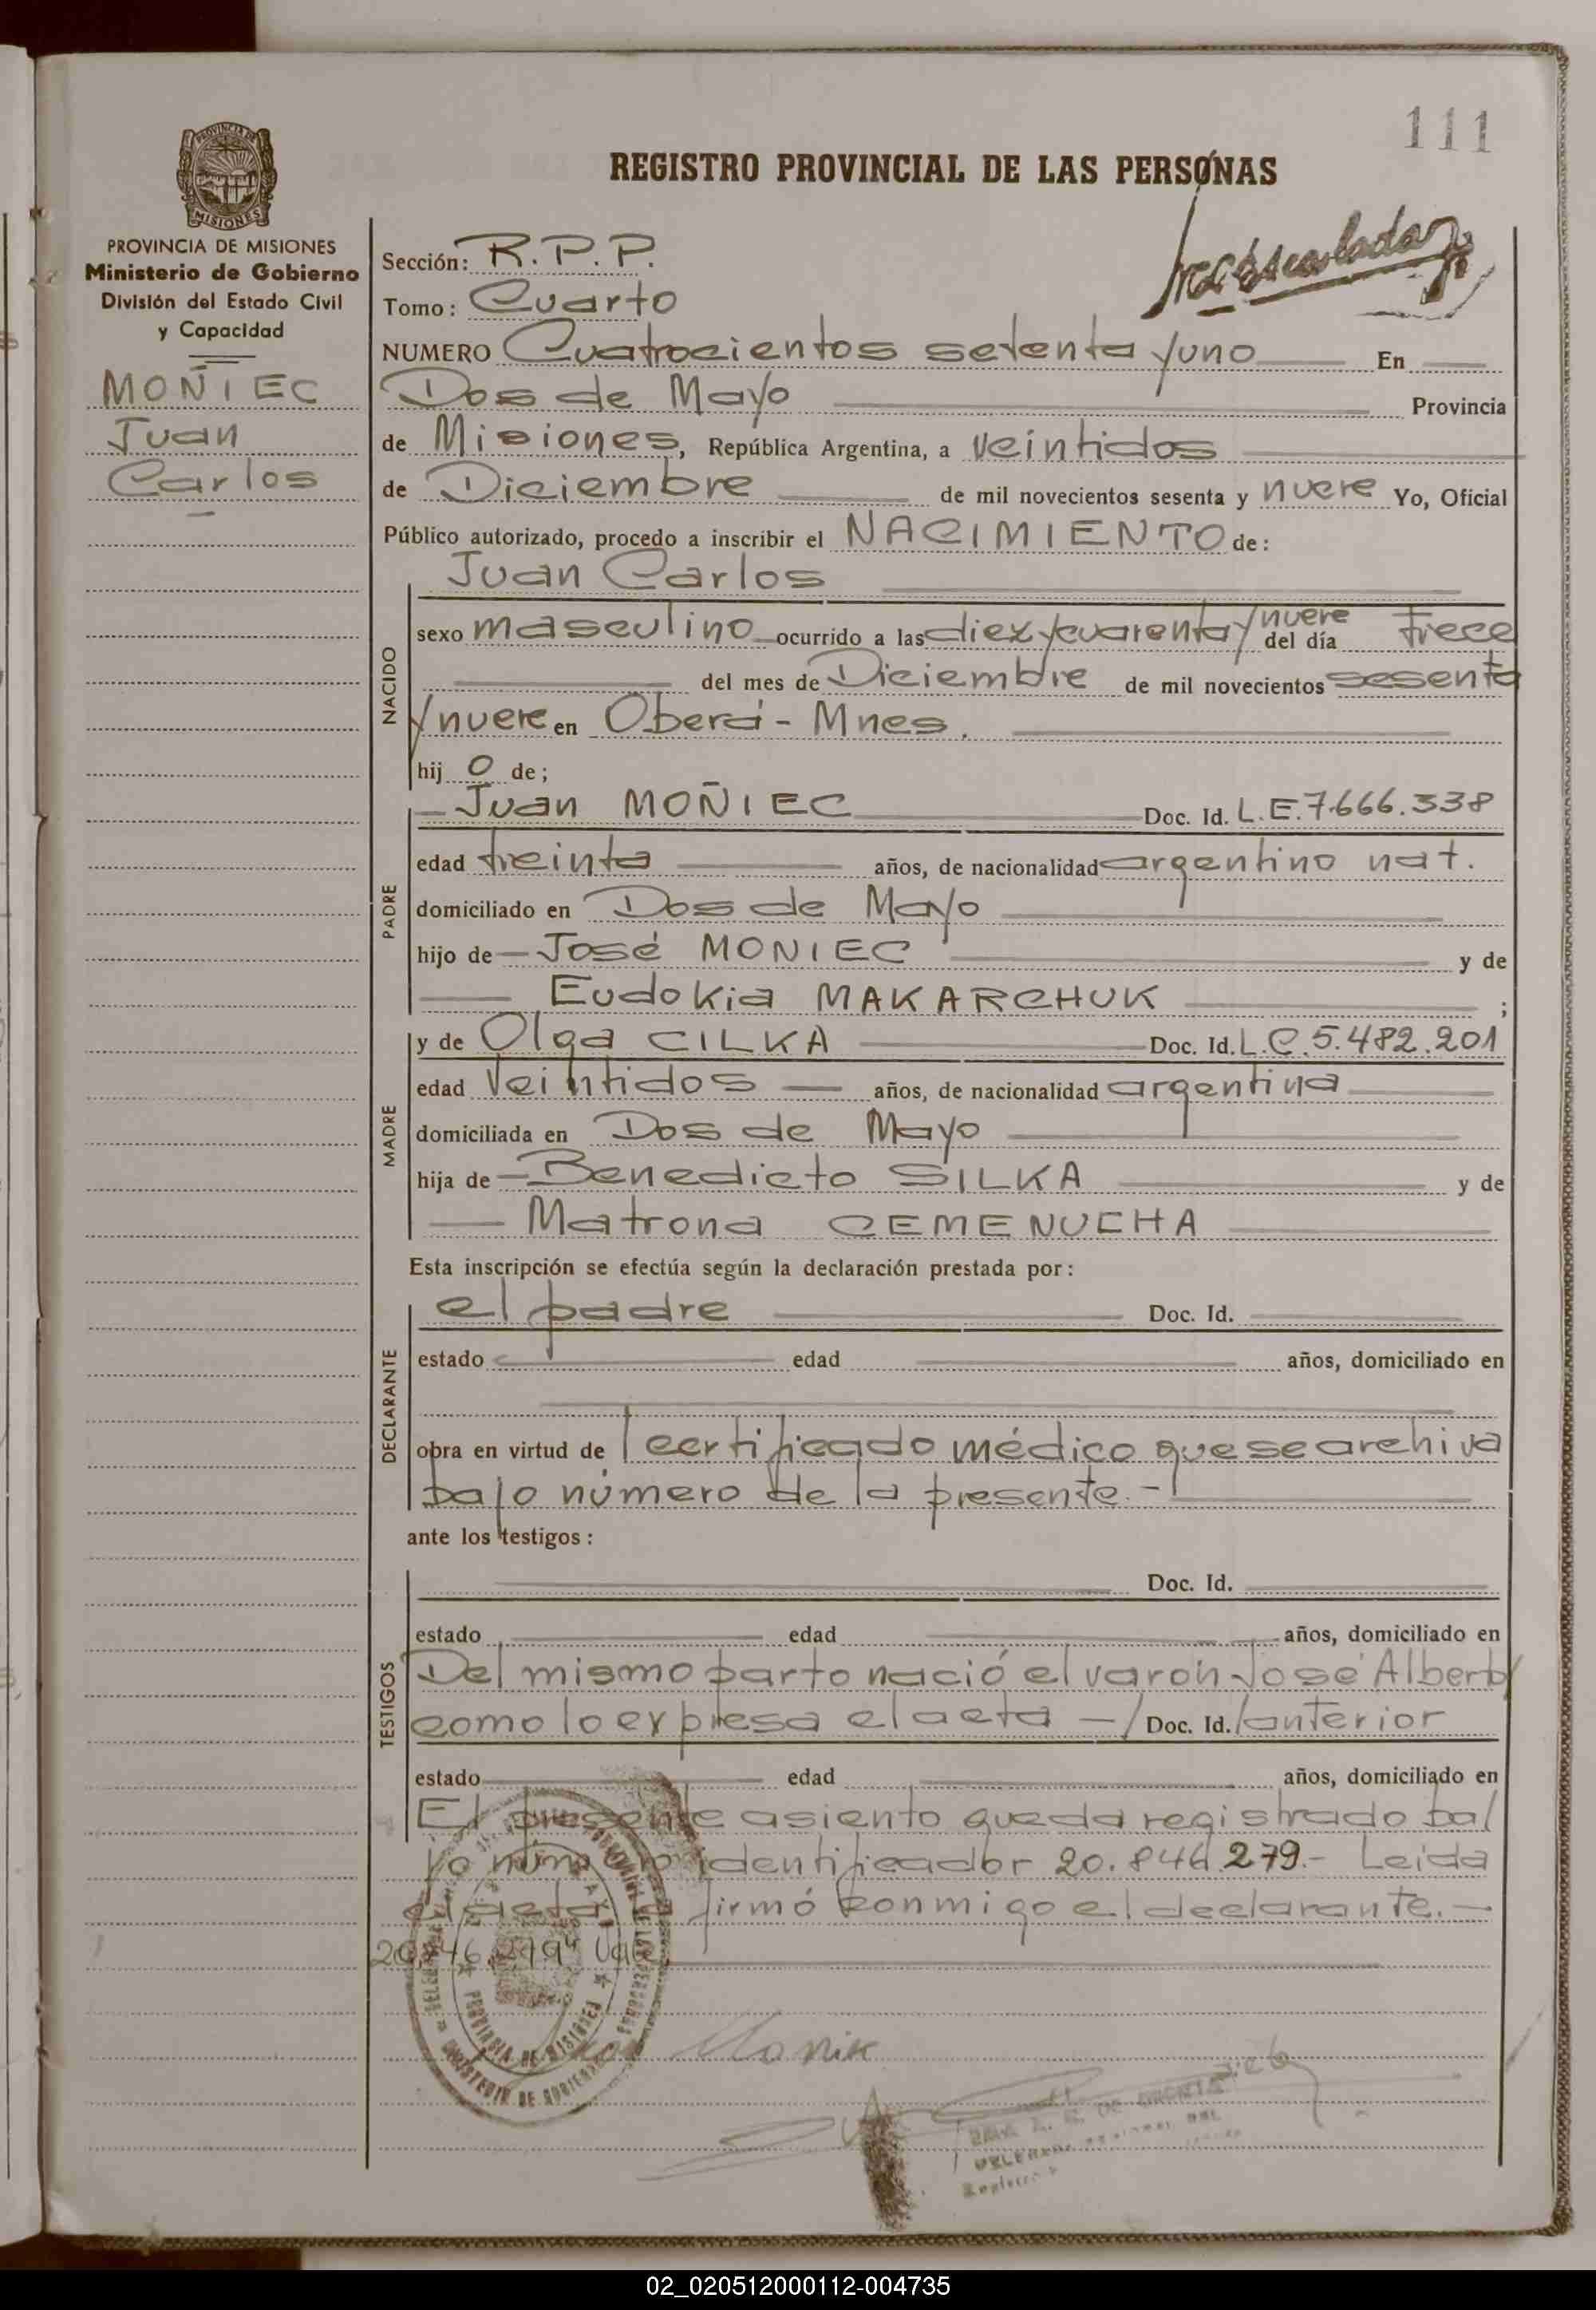 111
REGISTRO PROVINCIAL DE LAS PERSONAS
PROVINCIA DE
MISIONES
PROVINCIA DE MISIONES
Ministerio de Gobierno
División del Estado Civil
y Capacidad
MOÑIEC
Juan
Carlos
Sección: R.P.P.
Tomo: Cuarto
NUMERO Cuatrocientos setenta y uno En
Dos de Mayo Provincia
de Misiones, República Argentina, a veintidos
de Diciembre de mil novecientos sesenta y nueve Yo, Oficial
Público autorizado, procedo a inscribir el NACIMIENTO de:
Juan Carlos
NACIDO
sexo masculino ocurrido a las diez y cuarenta y nueve del día trece
del mes de Diciembre de mil novecientos sesenta
y nueve en Oberá - Mnes.
hij o de;
PADRE
Juan MOÑIEC Doc. Id. L.E. 7.666.338
edad treinta años, de nacionalidad argentino nat.
domiciliado en Dos de Mayo
hijo de José MONIEC y de
Eudokia MAKARCHUK ;
MADRE
y de Olga CILKA Doc. Id. L.C. 5.482.201
edad veintidos años, de nacionalidad argentina
domiciliada en Dos de Mayo
hija de Benedicto SILKA y de
Matrona CEMENUCHA
Esta inscripción se efectúa según la declaración prestada por:
DECLARANTE
el padre Doc. Id.
estado edad años, domiciliado en
obra en virtud de l certificado médico que se archiva
bajo número de la presente.-
ante los testigos:
TESTIGOS
Doc. Id.
estado edad años, domiciliado en
Del mismo parto nació el varón José Alberto
como lo expresa el acta -/ Doc. Id. /anterior
estado edad años, domiciliado en
El presente asiento queda registrado ba/
jo número identificador 20.846.279.- Leida
el acta, la firmó conmigo el declarante.-
PROVINCIA DE MISIONES
MINISTERIO DE GOBIERNO
02_020512000112-004735